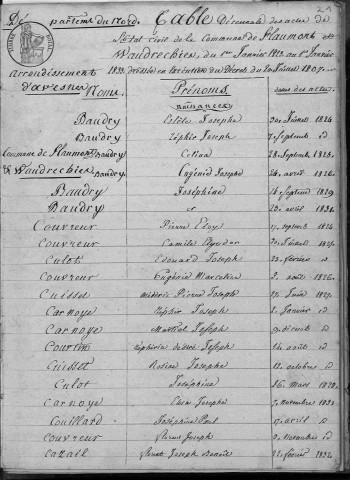 21
Départemt du Nord. Table Décennale des actes de
l'Etat civil de la Commune de Flaumont et
Waudrechies, du 1er Janvier 1823 au 1er Janvier
1833 dressée en exécution du Décret du 20 Juillet 1807.
arrondissement
d'avesnes
Noms Prénoms dates des actes
naissances
Baudry Josephe 1824
Baudry Zéphir Joseph 7 Septemb id
Commune de Flaumont Baudry Celina 28 Septemb 1825.
& Waudrechies Baudry Eugénie Joseph 26 avril 1826
Baudry Joséphine Septemb 1829
Baudry 23 avril 1831.
Couvreur Pierre Eloy 17 Septemb 1824
Couvreur Camile
Culot Edouard Joseph 22 février
Couvreur Eugénie Marceline 2 août 1826.
Cuisset Médéric Pierre Joseph Juin 1827.
Carnoye Zéphir Joseph 2 Janvier id
Carnoye Martial Joseph id
Courtin Joseph août id
Cuisset Rosine Josephe 12 octobre id
Culot Joséphine 16 Mars 1829.
Carnoye Joseph 7 novembre
Couillard Joséphine 17 avril id
Couvreur Florent Joseph 9 novembre id
Cazail Joseph Benoit 22 février 1832